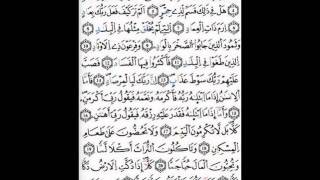 هَلْ فِي ذَٰلِكَ قَسَمٌ لِّذِي حِجْرٍ ۝ أَلَمْ تَرَ كَيْفَ فَعَلَ رَبُّكَ بِعَادٍ
إِرَمَ ذَاتِ ٱلْعِمَادِ ۝ ٱلَّتِي لَمْ يُخْلَقْ مِثْلُهَا فِي ٱلْبِلَٰدِ ۝
وَثَمُودَ ٱلَّذِينَ جَابُوا۟ ٱلصَّخْرَ بِٱلْوَادِ ۝ وَفِرْعَوْنَ ذِي ٱلْأَوْتَادِ ۝
ٱلَّذِينَ طَغَوْا۟ فِي ٱلْبِلَٰدِ ۝ فَأَكْثَرُوا۟ فِيهَا ٱلْفَسَادَ ۝ فَصَبَّ
عَلَيْهِمْ رَبُّكَ سَوْطَ عَذَابٍ ۝ إِنَّ رَبَّكَ لَبِٱلْمِرْصَادِ ۝ فَأَمَّا
ٱلْإِنسَٰنُ إِذَا مَا ٱبْتَلَىٰهُ رَبُّهُۥ فَأَكْرَمَهُۥ وَنَعَّمَهُۥ فَيَقُولُ رَبِّي أَكْرَمَنِ ۝
وَأَمَّآ إِذَا مَا ٱبْتَلَىٰهُ فَقَدَرَ عَلَيْهِ رِزْقَهُۥ فَيَقُولُ رَبِّي أَهَٰنَنِ ۝
كَلَّا بَل لَّا تُكْرِمُونَ ٱلْيَتِيمَ ۝ وَلَا تَحَٰٓضُّونَ عَلَىٰ طَعَامِ
ٱلْمِسْكِينِ ۝ وَتَأْكُلُونَ ٱلتُّرَاثَ أَكْلًا لَّمًّا ۝
وَتُحِبُّونَ ٱلْمَالَ حُبًّا جَمًّا ۝ كَلَّآ إِذَا دُكَّتِ ٱلْأَرْضُ دَكًّا